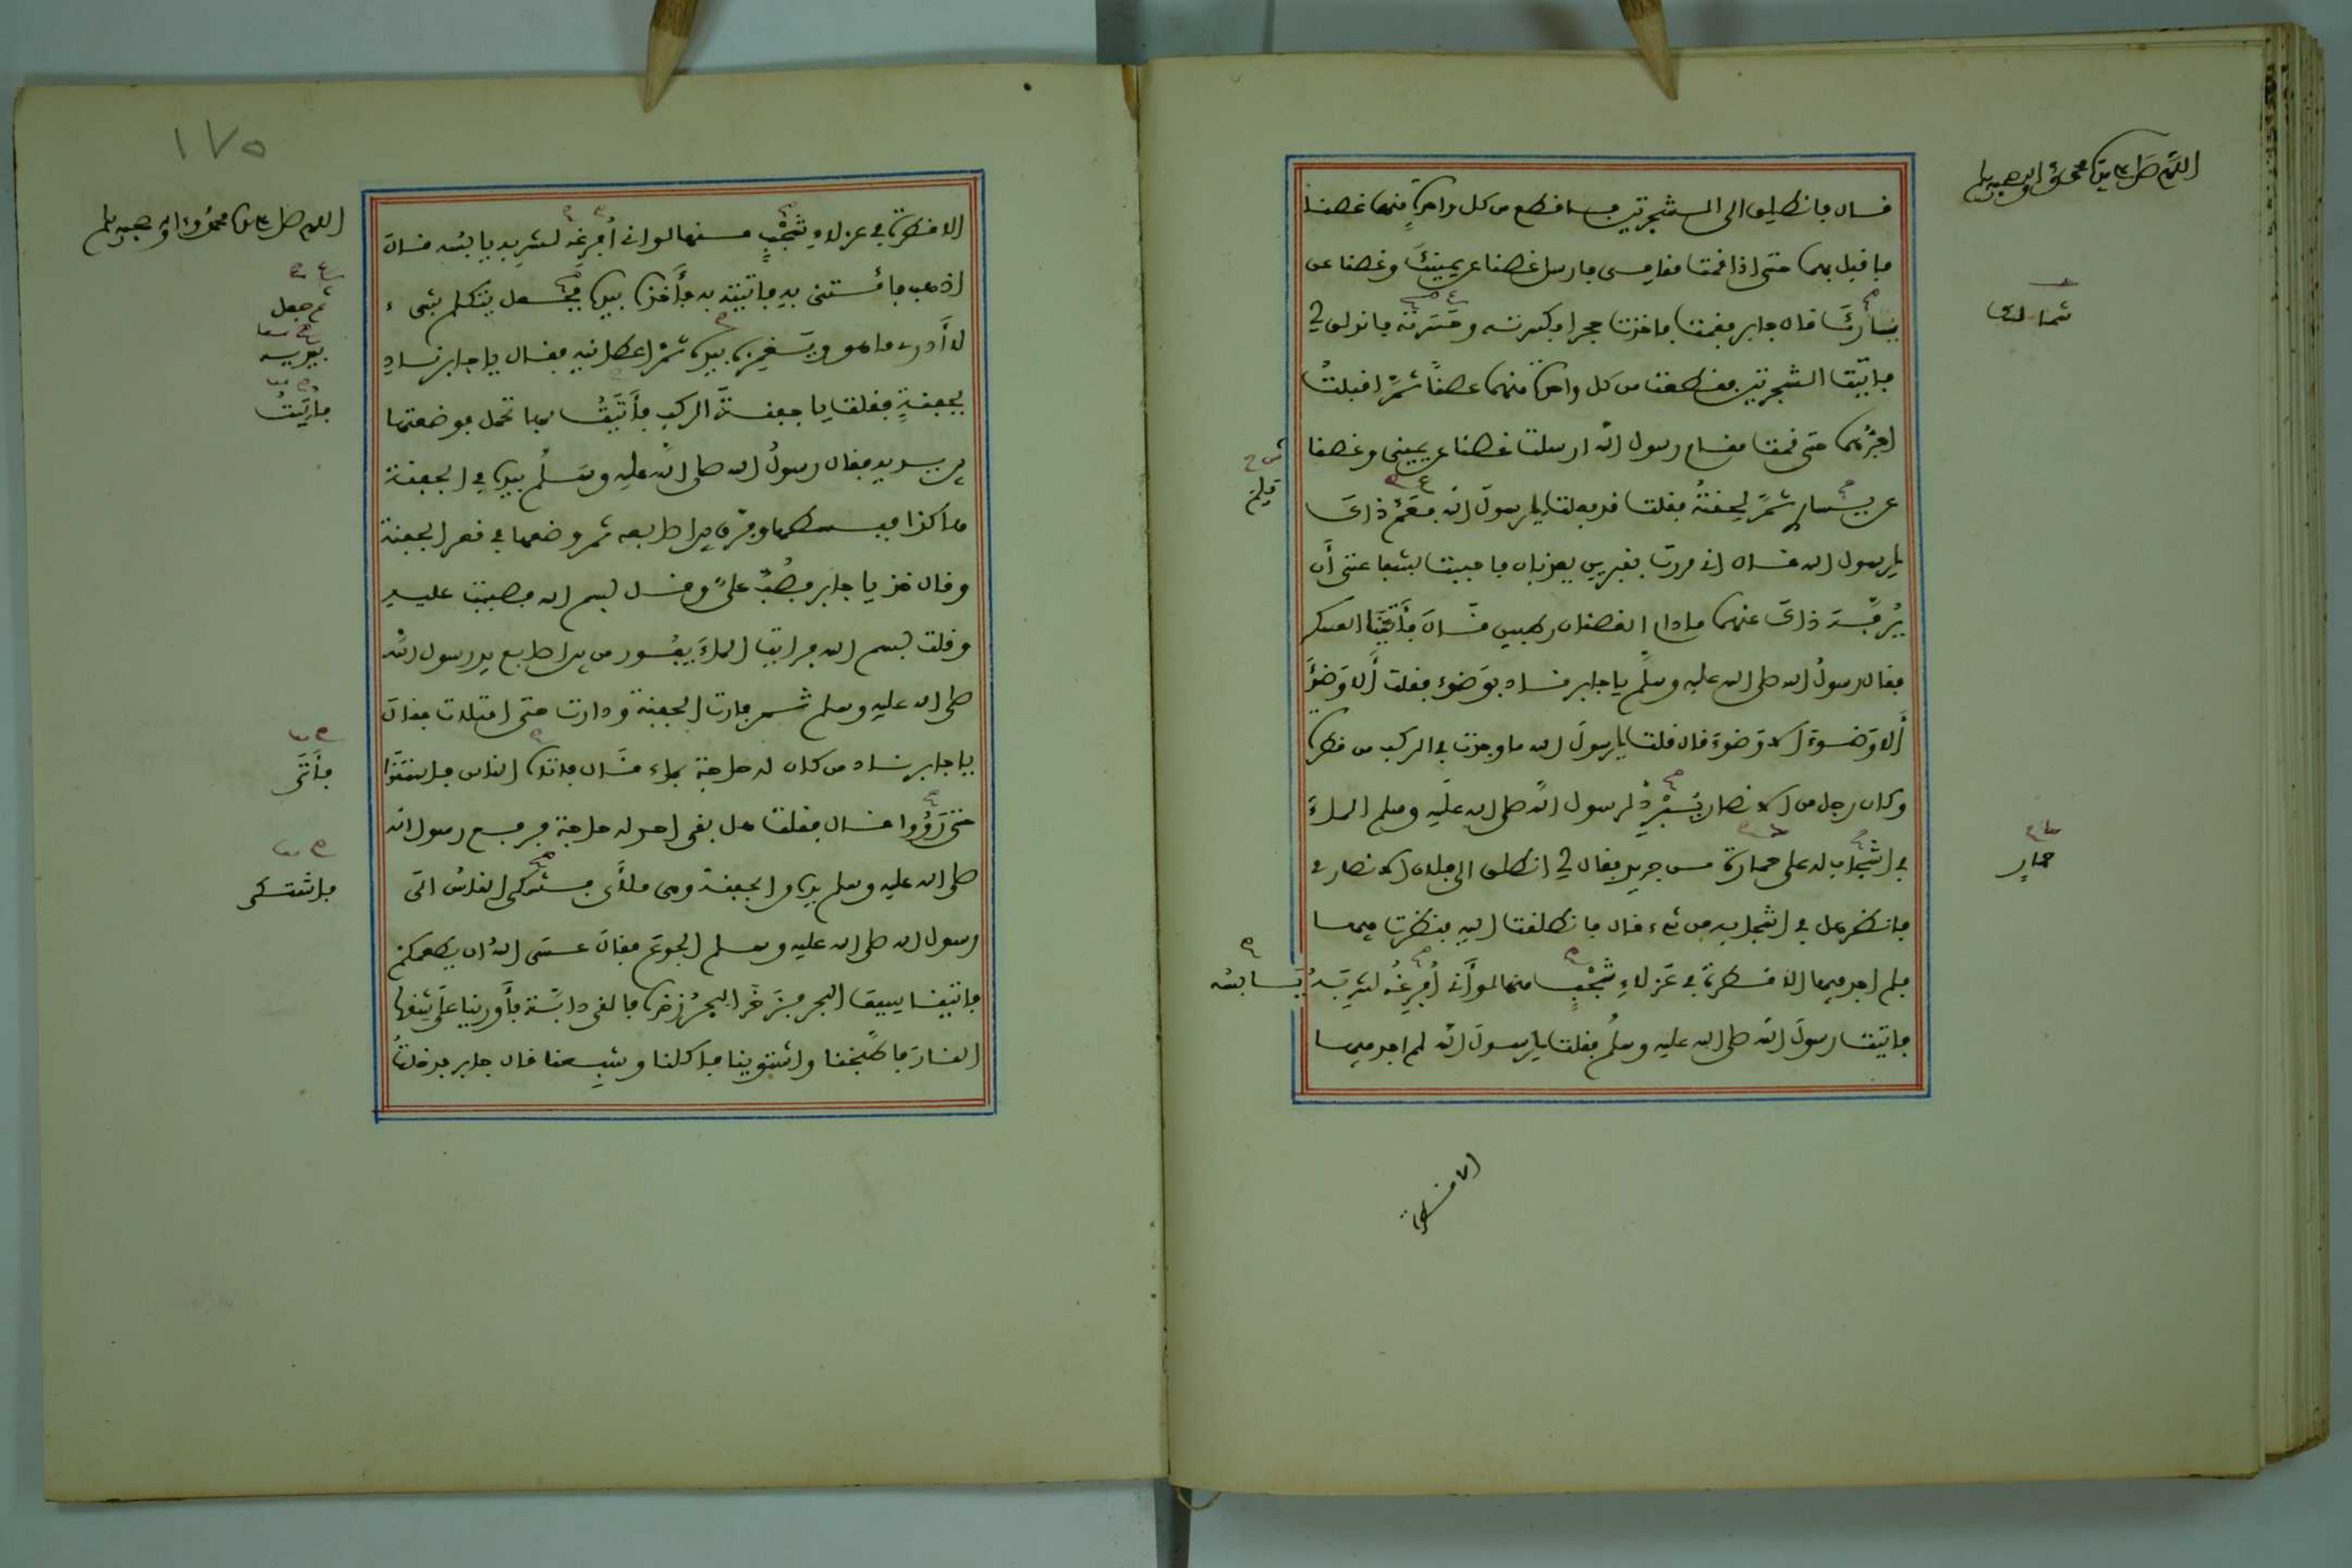 اللهم صل على سيدنا محمد وآله وصحبه وسلم
قال فانطلق الى الشجرتين فاقطع من كل واحدة منهما غصنا
فاقبل بهما حتى اذا قمت مقامي فارسل غصنا عن يمينك وغصنا عن
يسارك قال جابر فقمت فاخذت حجرا فكسرته وحسرته فانذلق لي
فاتيت الشجرتين فقطعت من كل واحدة منهما غصنا ثم اقبلت
اجرهما حتى قمت مقام رسول الله ارسلت غصنا عن يميني وغصنا
عن يساري ثم لحقته فقلت قد فعلت يا رسول الله فعم ذاك
يا رسول الله قال اني مررت بقبرين يعذبان فاحببت بشفاعتي أن
يرفه ذاك عنهما ما دام الغصنان رطبين قال فأتينا العسكر
فقال رسول الله صلى الله عليه وسلم يا جابر ناد بوضوء فقلت ألا وضوء
ألا وضوء الا وضوء قال قلت يا رسول الله ما وجدت في الركب من قطرة
وكان رجل من الانصار يبرد لرسول الله صلى الله عليه وسلم الماء
في اشجاب له على حمارة من جريد فقال لي انطلق الى فلان الانصاري
فانظر هل في اشجابه من شيء قال فانطلقت اليه فنظرت فيها
فلم اجد فيها الا قطرة في عزلاء شجب منها لو أني أفرغه لشربه يابسه
فاتيت رسول الله صلى الله عليه وسلم فقلت يا رسول الله لم اجد فيها
شمالك
حمار
الا قطرة
اللهم صل على سيدنا محمد وآله وصحبه وسلم
١٧٥
الا قطرة في عزلاء شجب منها لو اني أفرغه لشربه يابسه قال
اذهب فأتني به فاتيته به فأخذه بيده فجعل يتكلم بشيء
لا أدري ما هو ويغمزه بيده ثم اعطانيه فقال يا جابر ناد
بجفنة فقلت يا جفنة الركب فأتيت بها تحمل فوضعتها
بين يديه فقال رسول الله صلى الله عليه وسلم بيده في الجفنة
هاكذا فبسطها وفرق بين اصابعه ثم وضعها في قعر الجفنة
وقال خذ يا جابر فصب علي وقل بسم الله فصببت عليه
وقلت بسم الله فرايت الماء يفور من بين اصابع يد رسول الله
صلى الله عليه وسلم ثم فارت الجفنة ودارت حتى امتلات فقال
يا جابر ناد من كان له حاجة بماء قال فاتى الناس فاستقوا
حتى رووا قال فقلت هل بقي احد له حاجة فرفع رسول الله
صلى الله عليه وسلم يده من الجفنة وهي ملأى فشكى الناس الى
رسول الله صلى الله عليه وسلم الجوع فقال عسى الله ان يطعمكم
فاتينا سيف البحر فزخر البحر زخرة فالقى دابة فأورينا على شقها
النار فاطبخنا واشتوينا فاكلنا وشبعنا قال جابر فدخلت
ثم جعل
بيديه
فأتيت
فأتى
فاشتكى